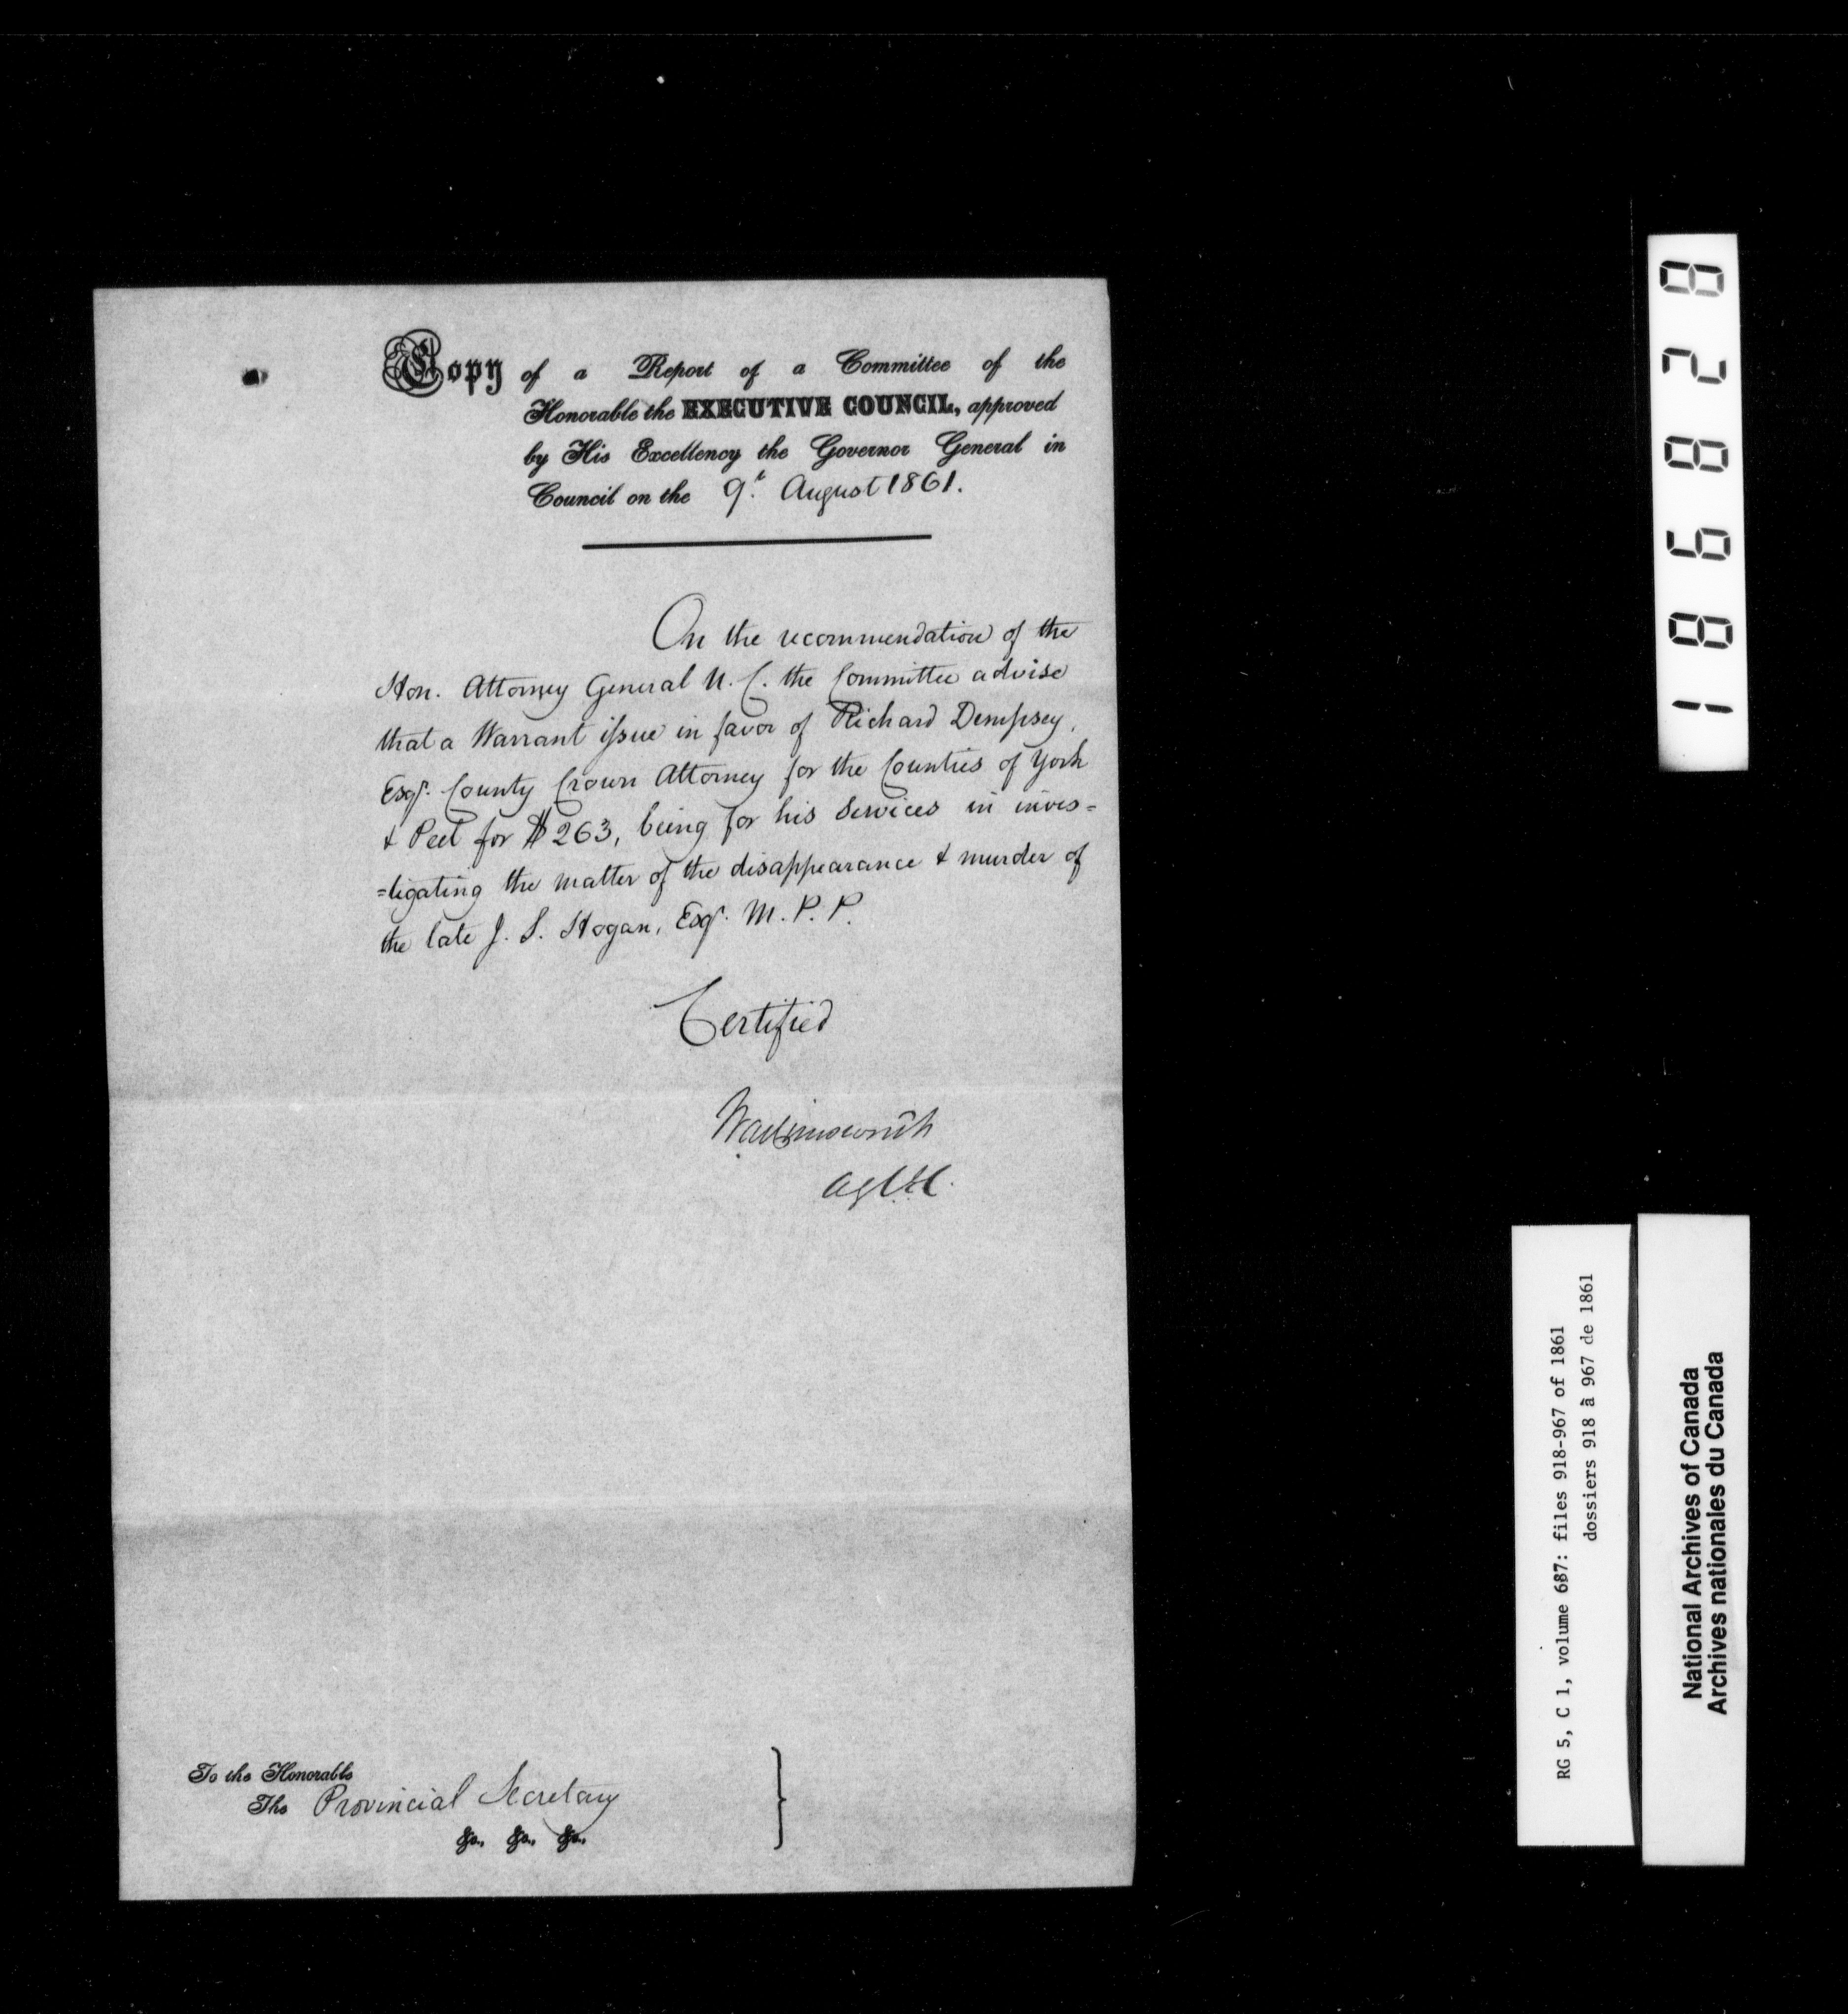 Copy of a Report of a Committee of the
Honorable the EXECUTIVE COUNCIL, approved
by His Excellency the Governor General in
Council on the 9.t August 1861.
On the recommendation of the
Hon. Attorney General U. C. the Committee advise
that a Warrant issue in favor of Richard Dempsey,
Esqr. County Crown Attorney for the Counties of York
& Peel for $263, being for his Services in inves=
=tigating the matter of the disappearance & murder of
the late J. S. Hogan, Esqr. M. P. P.
Certified
To the Honorable
The Provincial Secretary
&c., &c., &c.,
186828
RG 5, C 1, volume 687: files 918-967 of 1861
dossiers 918 à 967 de 1861
National Archives of Canada
Archives nationales du Canada